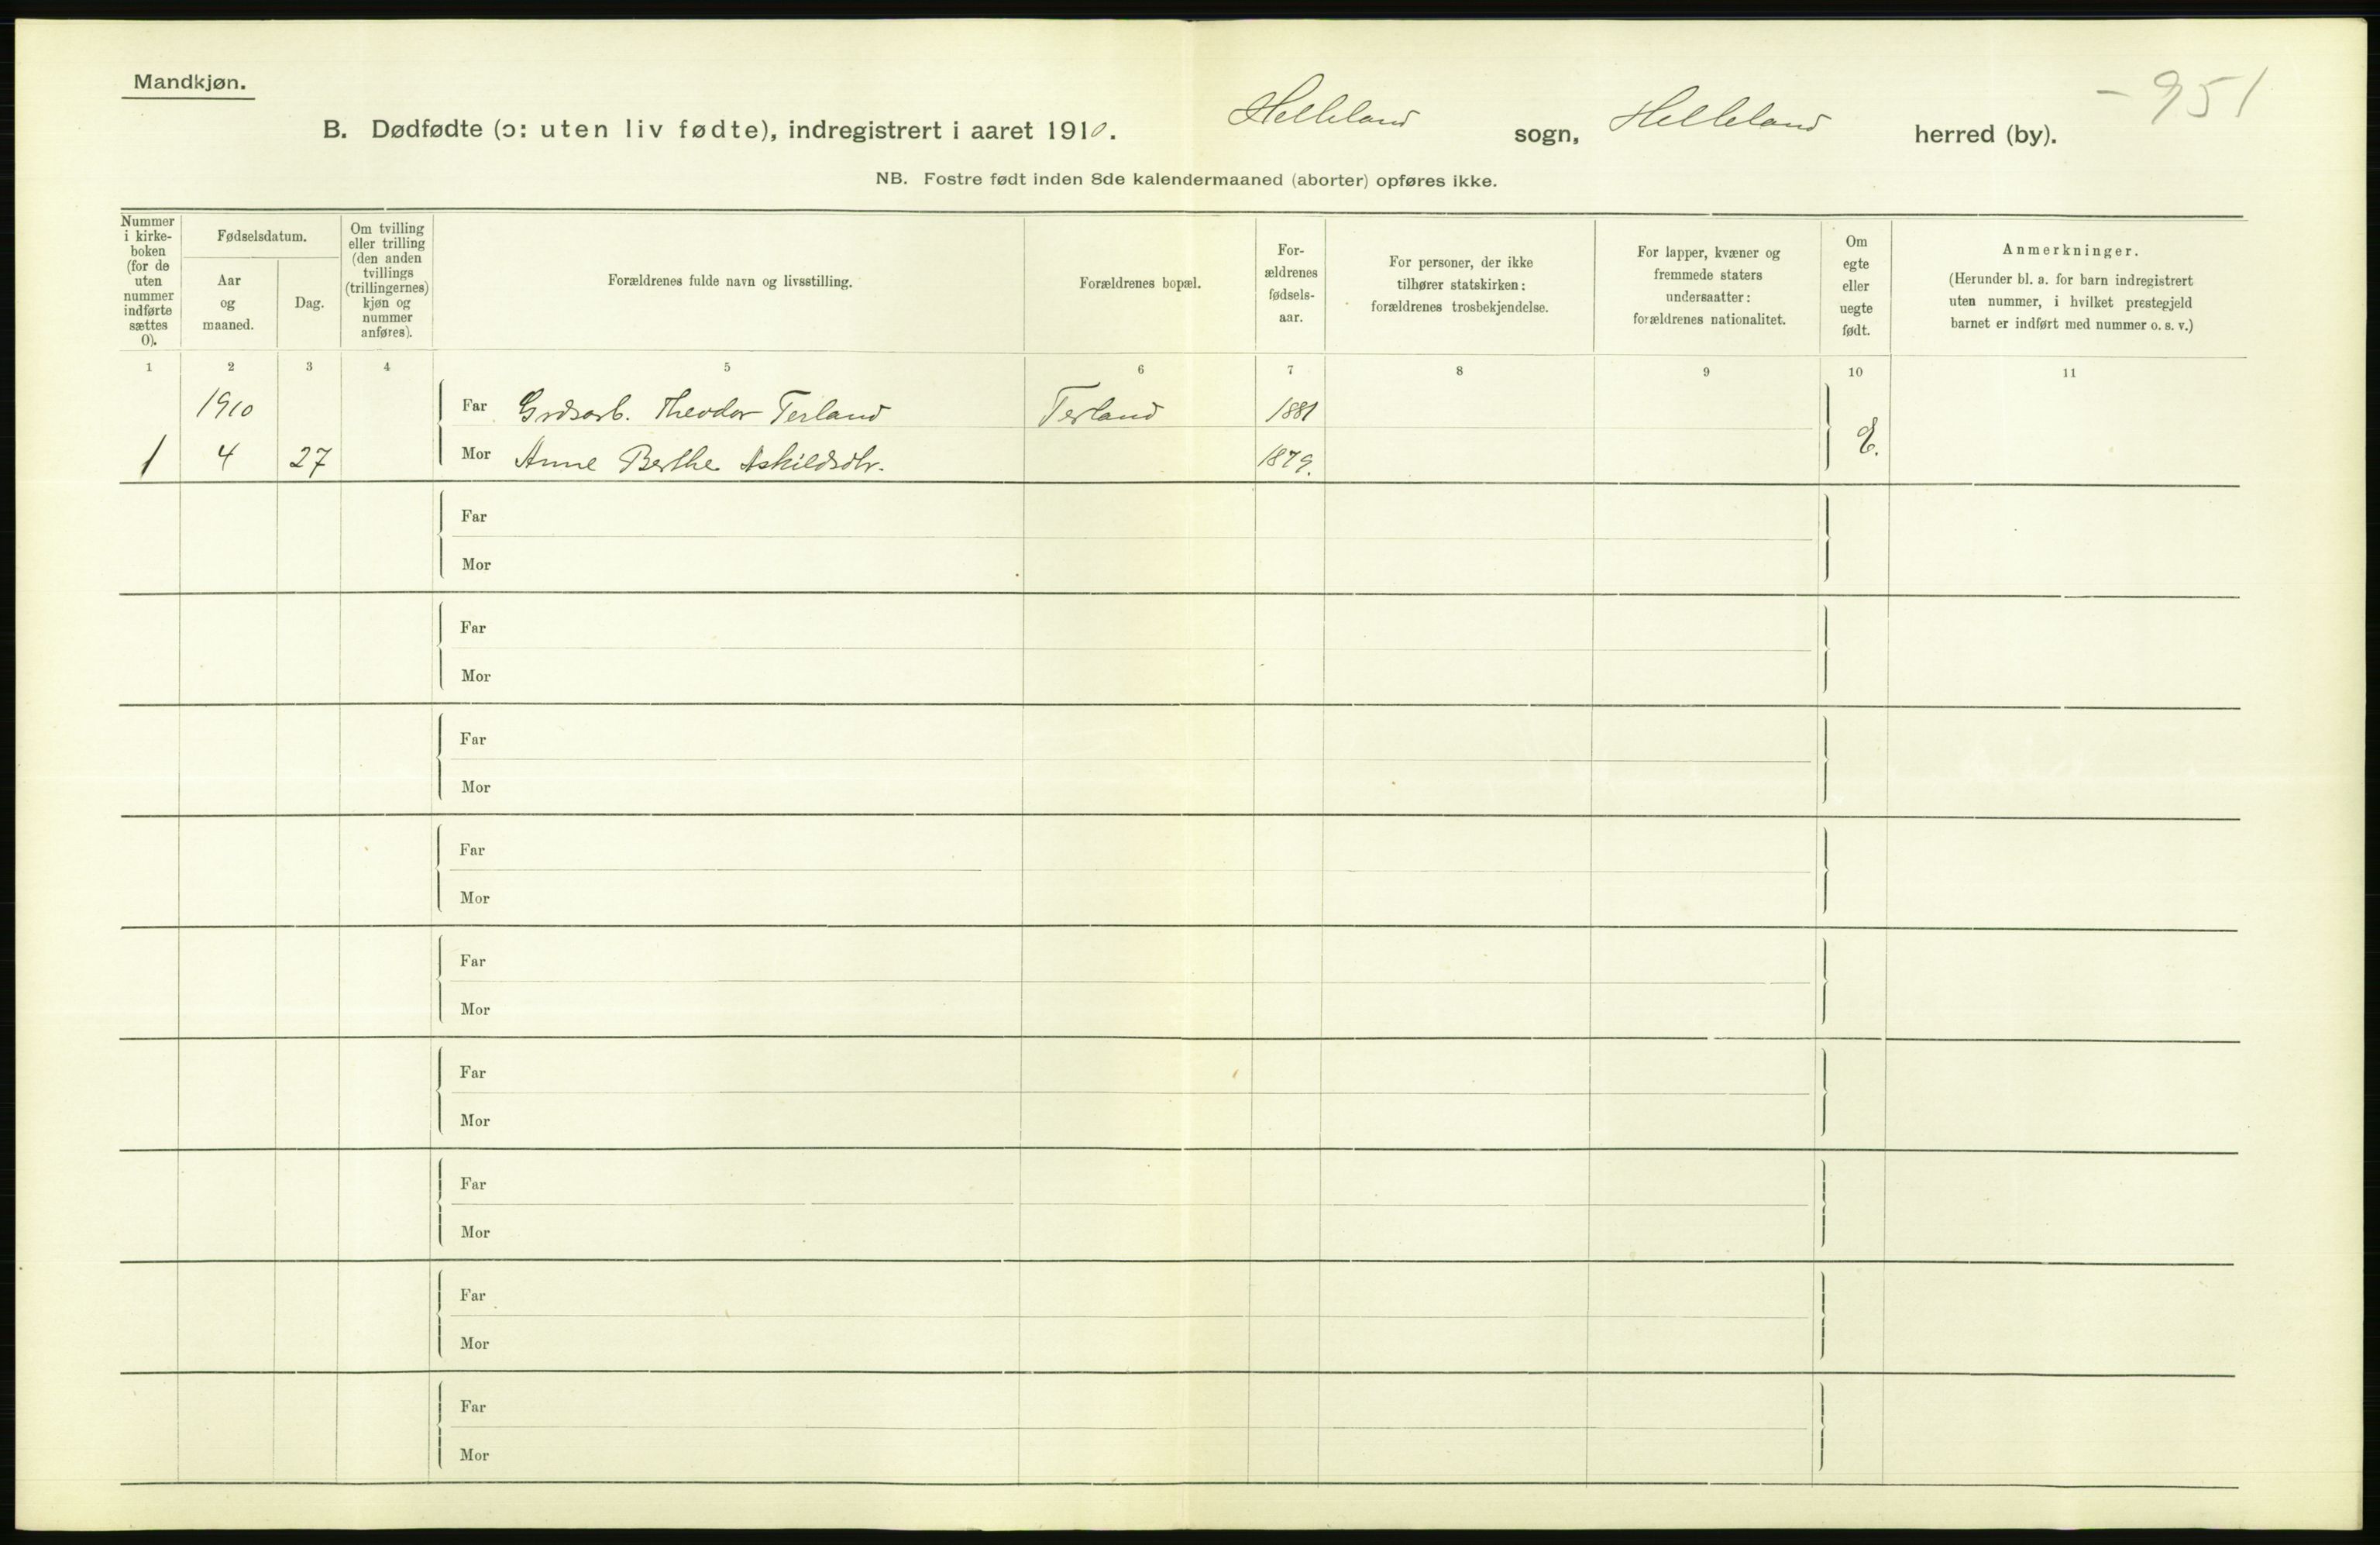 Mandkjøn.
- 951
B. Dødfødte (ɔ: uten liv fødte), indregistrert i aaret 1910. Helleland sogn, Helleland herred (by).
NB. Fostre født inden 8de kalendermaaned (aborter) opføres ikke.
Nummer i kirke-boken (for de uten nummer indførte sættes 0).
Fødselsdatum.
Aar og maaned.
Dag.
Om tvilling eller trilling (den anden tvillings (trillingernes) kjøn og nummer anføres).
Forældrenes fulde navn og livsstilling.
Forældrenes bopæl.
For-ældrenes fødsels-aar.
For personer, der ikke tilhører statskirken: forældrenes trosbekjendelse.
For lapper, kvæner og fremmede staters undersaatter: forældrenes nationalitet.
Om egte eller uegte født.
Anmerkninger.
(Herunder bl. a. for barn indregistrert uten nummer, i hvilket prestegjeld barnet er indført med nummer o. s. v.)
1 2 3 4 5 6 7 8 9 10 11
1910 Far Grdsarb. Theodor Terland Terland 1881
1 4 27 Mor Anne Berthe Askildsdtr. 1879. E.
Far
Mor
Far
Mor
Far
Mor
Far
Mor
Far
Mor
Far
Mor
Far
Mor
Far
Mor
Far
Mor